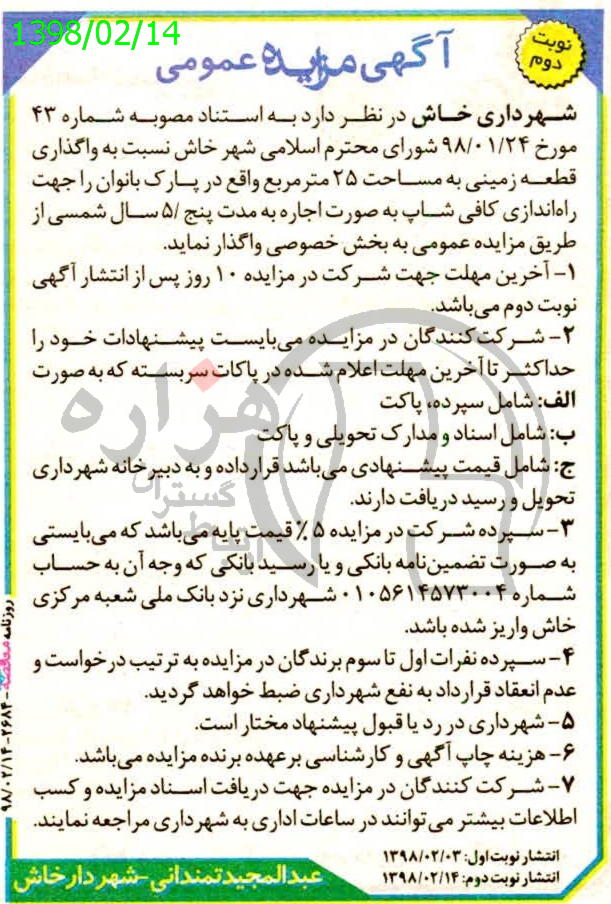 1398/02/14
نوبت
دوم
آگهی مزایده عمومی
شهرداری خاش در نظر دارد به استناد مصوبه شماره ۴۳
مورخ ۹۸/۰۱/۲۴ شورای محترم اسلامی شهر خاش نسبت به واگذاری
قطعه زمینی به مساحت ۲۵ مترمربع واقع در پارک بانوان را جهت
راه‌اندازی کافی شاپ به صورت اجاره به مدت پنج /۵ سال شمسی از
طریق مزایده عمومی به بخش خصوصی واگذار نماید.
۱- آخرین مهلت جهت شرکت در مزایده ۱۰ روز پس از انتشار آگهی
نوبت دوم می‌باشد.
۲- شرکت‌کنندگان در مزایده می‌بایست پیشنهادات خود را
حداکثر تا آخرین مهلت اعلام شده در پاکات سربسته که به صورت
الف: شامل سپرده، پاکت
ب: شامل اسناد و مدارک تحویلی و پاکت
ج: شامل قیمت پیشنهادی می‌باشد قرار داده و به دبیرخانه شهرداری
تحویل و رسید دریافت دارند.
۳- سپرده شرکت در مزایده ۵٪ قیمت پایه می‌باشد که می‌بایستی
به صورت تضمین‌نامه بانکی و یا رسید بانکی که وجه آن به حساب
شماره ۰۱۰۵۶۱۴۵۷۳۰۰۴ شهرداری نزد بانک ملی شعبه مرکزی
خاش واریز شده باشد.
۴- سپرده نفرات اول تا سوم برندگان در مزایده به ترتیب درخواست و
عدم انعقاد قرارداد به نفع شهرداری ضبط خواهد گردید.
۵- شهرداری در رد یا قبول پیشنهاد مختار است.
۶- هزینه چاپ آگهی و کارشناسی برعهده برنده مزایده می‌باشد.
۷- شرکت کنندگان در مزایده جهت دریافت اسناد مزایده و کسب
اطلاعات بیشتر می‌توانند در ساعات اداری به شهرداری مراجعه نمایند.
انتشار نوبت اول: ۱۳۹۸/۰۲/۰۳
انتشار نوبت دوم: ۱۳۹۸/۰۲/۱۴
عبدالمجید تمندانی-شهردار خاش
روزنامه مناقصه -۲۶۸۴-۹۸/۰۲/۱۴
هزاره
گستران
ارتباط